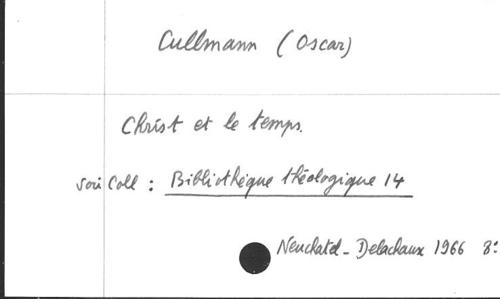 Cullmann (Oscar)
Christ et le temps.
voir Coll : Bibliothèque théologique 14
Neuchatel - Delachaux 1966 8°